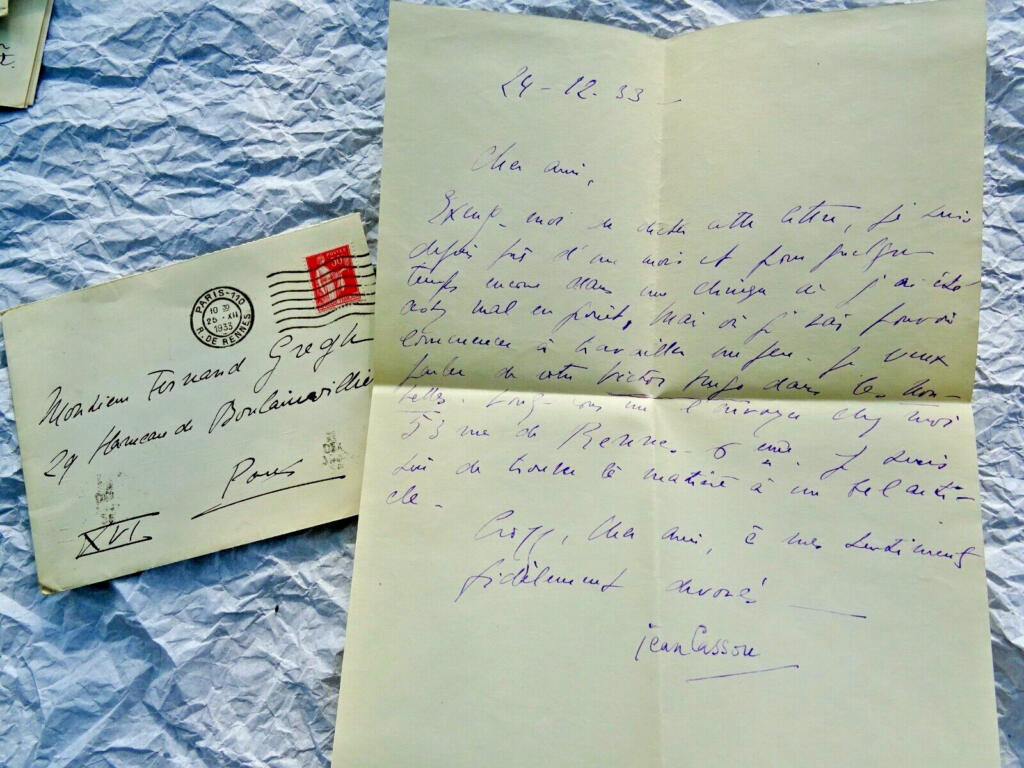 PARIS-110
10 
25 · XII
1933
R. DE RENNES
Monsieur Fernand Gregh
29 Hameau de Boulainvilliers
Paris
XVI
24-12-33-
Cher ami,
Excusez-moi de dicter cette lettre, je suis
depuis près d'un mois et pour quelque
temps encore dans une clinique où j'ai été
assez mal en point, mais où je vais pouvoir
commencer à travailler un peu. Je veux
parler de votre Victor Hugo dans les Nou-
velles. l'ouvrage chez moi
53 rue de Rennes. 6 eme. Je suis
sûr de trouver la matière à un bel arti-
cle.
Croyez, cher ami, à mes sentiments
fidèlement dévoués
jean Cassou